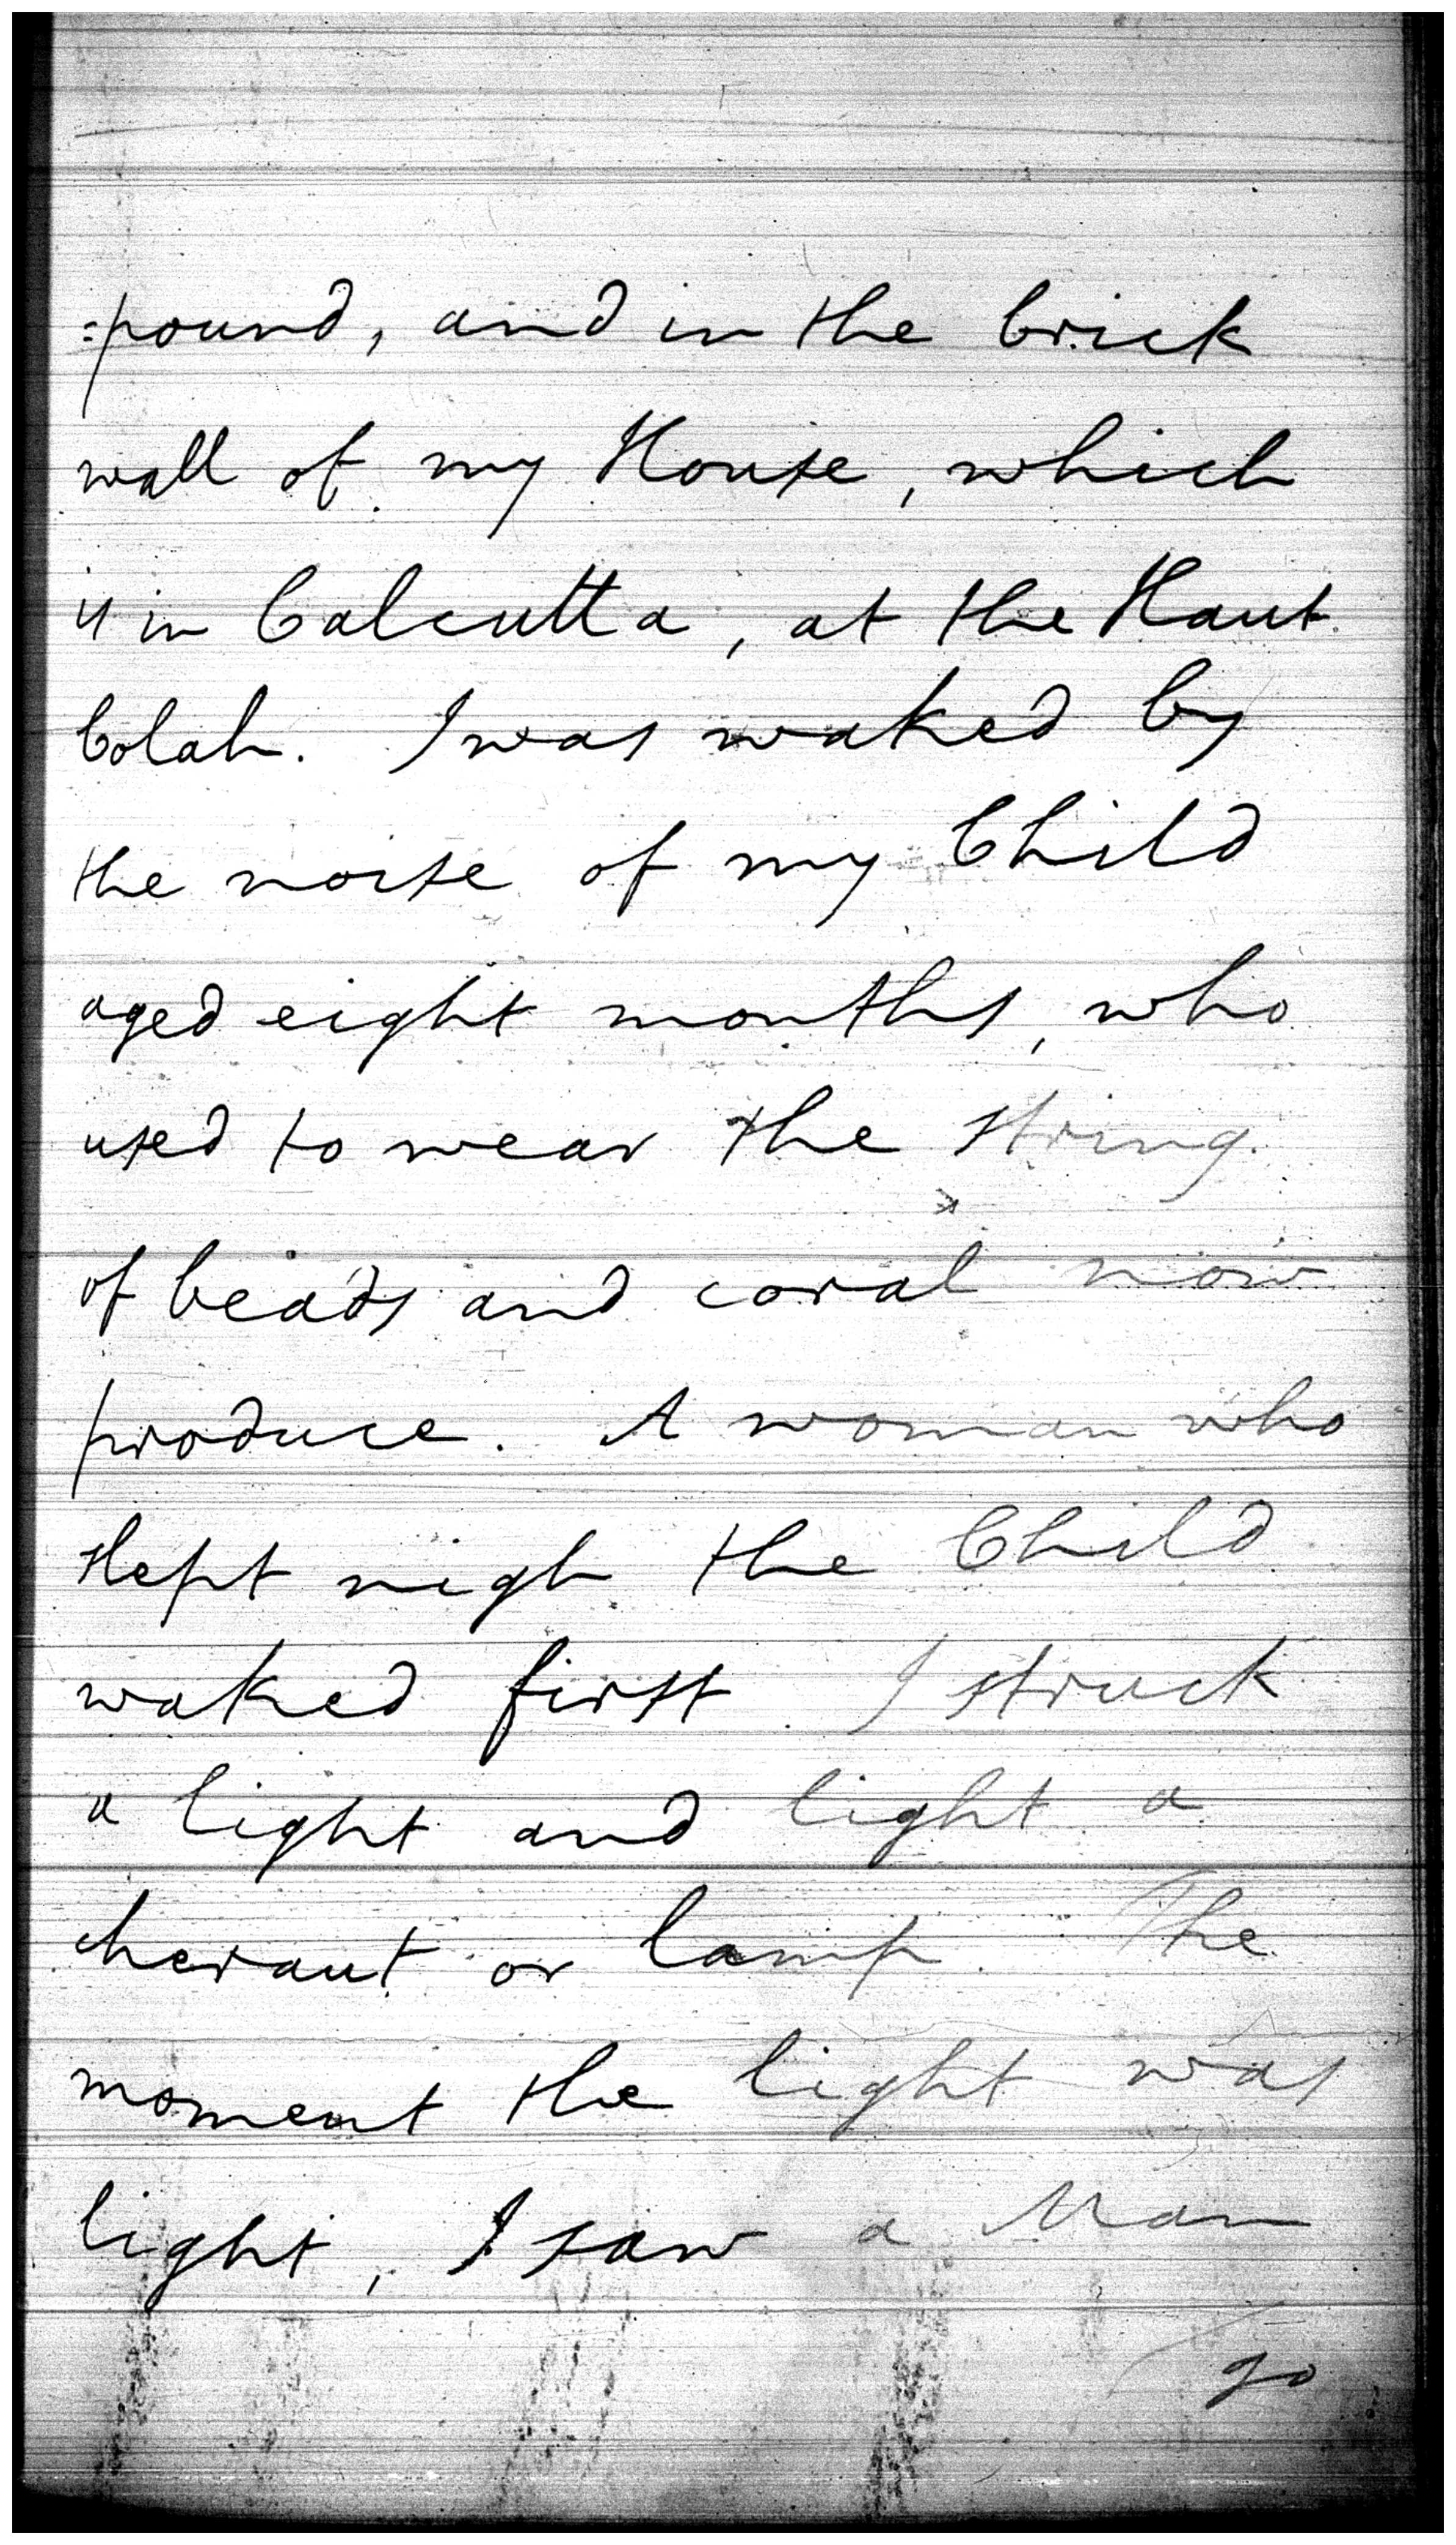 =pound, and in the brick
wall of my House, which
is in Calcutta, at the Haut
Colah. I was waked by
the noise of my Child
aged eight months, who
used to wear the string
of beads and coral now
produce. A woman who
slept nigh the Child
waked first. I struck
a light and light a
cheraut or lamp. The
moment the light was
light, I saw a Man
go